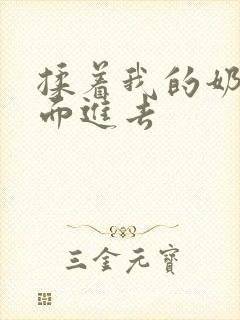 揉着我的奶
而进去
三金元寶